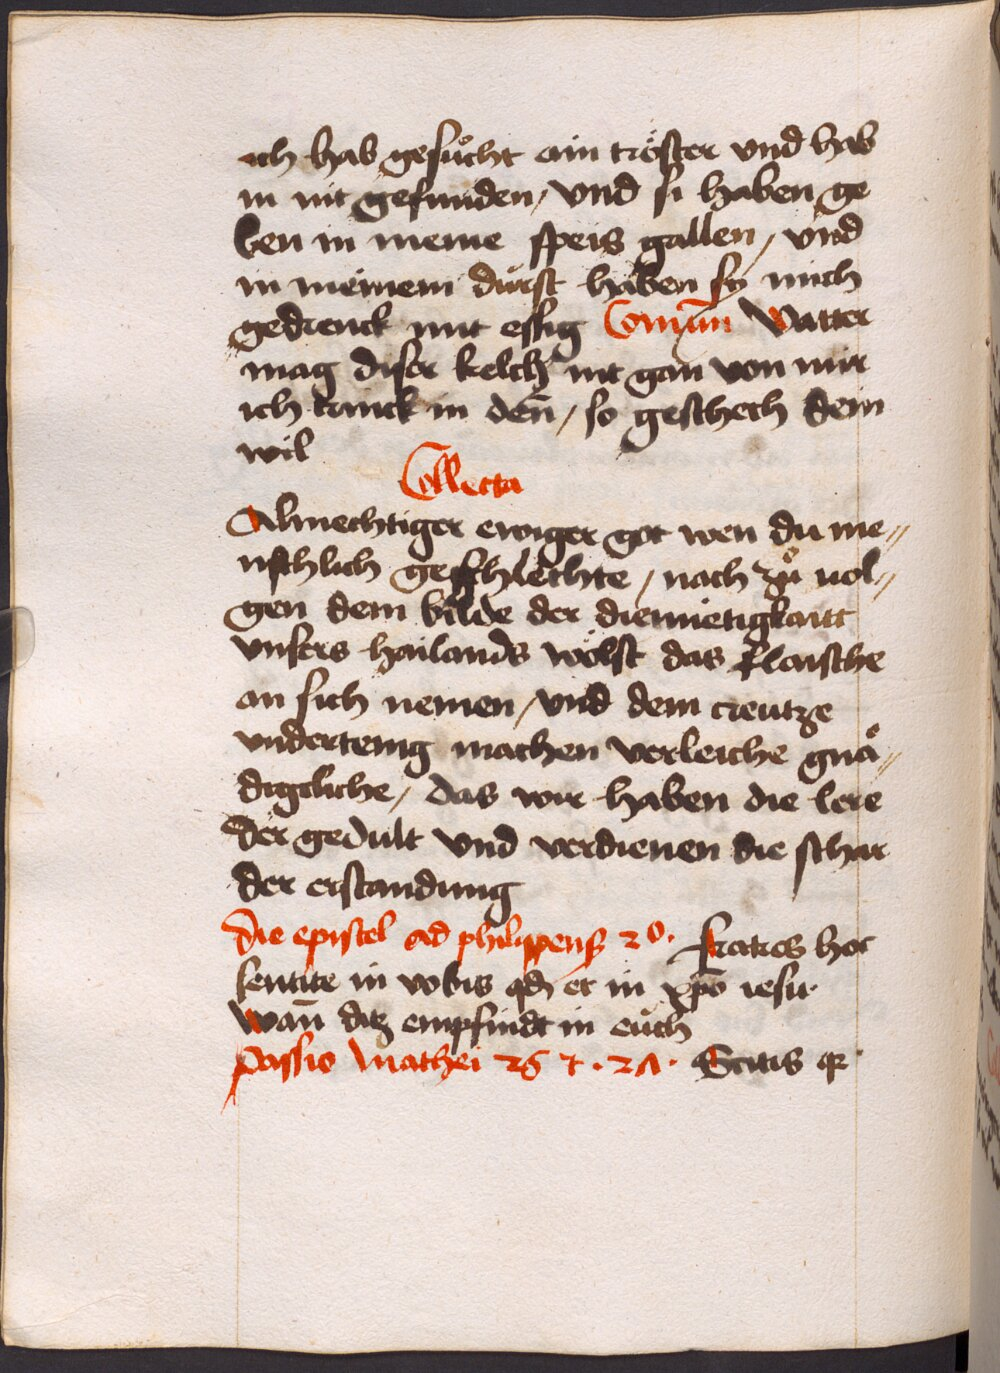 ich hab gesuͦcht ain tröster vnd hab
in nit gefunden / vnd si haben ge
ben in meine speis gallen / vnd
in meinem durst haben sy mich
gedrenck mit essig Com̄un Vatter
mag diser kelch nit gan von mir
ich trinck in den̄ / so geschech dein
wil
Collecta
Almechtiger ewiger got wen du me〃
nschlich geschlechte / nach zuͦ uol〃
gen dem bilde der diemietigkaitt
vnsers hailands wölst das flaische
an sich nemen / vnd dem creutze
vndertenig machen verleiche gnaͦ〃
digcliche / das wir haben die lere
der gedult vnd verdienen die schar
der erstandung
Die epistel ad philippens̄ 2⁰· fratres hoc
sentite in vobis qd̄ et in xp̄o iesu·
wan̄ ditz empfindt in euch
Passio Mathei 26 et · 27 · Scitis qr